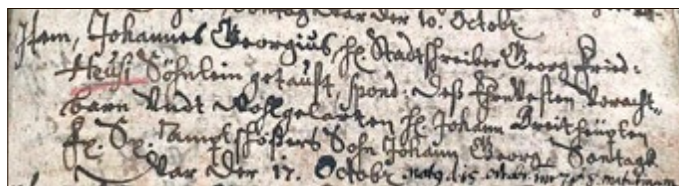 Sontag war der 10. Octobr
Item, Johannes Georgius, hn Stadtschreiber Georg Fried:
Heußi Söhnlein getauft, spond: deß Ehrnvesten Voracht-
barn Undt Wohlgelarten hn Johann Breitheupten
Amptshößers Sohn Johann Georg. Sontags
War der 17. Octobr